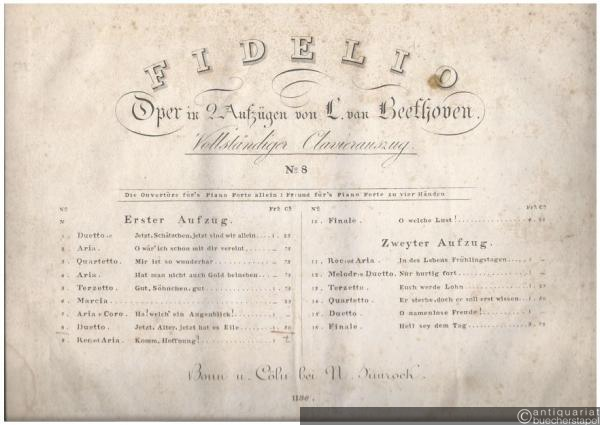 FIDELIO
Oper in 2 Aufzügen von L. van Beethoven.
Vollständiger Clavierauszug.
No 8
Die Ouvertüre für's Piano Forte allein 1 Fr: und für's Piano Forte zu vier Händen
No Frs Cs
Erster Aufzug.
1. Duetto. Jetzt, Schätzchen, jetzt sind wir allein. 1. 25
2. Aria. O wär' ich schon mit dir vereint. 75
3. Quartetto. Mir ist so wunderbar 75
4. Aria. Hat man nicht auch Gold beineben 75
5. Terzetto. Gut, Söhnchen, gut 1. 75
6. Marcia. 25
7. Aria e Coro. Ha! welch' ein Augenblick! 1. 25
8. Duetto. Jetzt, Alter, jetzt hat es Eile 1. 50
9. Rec et Aria. Komm, Hoffnung! 1.
No Frs Cs
10. Finale. O welche Lust!
Zweyter Aufzug.
11. Rec et Aria. In des Lebens Frühlingstagen 1.
12. Melodr e Duetto. Nur hurtig fort 1.
13. Terzetto. Euch werde Lohn
14. Quartetto. Er sterbe, doch er soll erst wissen 1.
15. Duetto. O namenlose Freude! 1.
16. Finale. Heil sey dem Tag
Bonn u. Cöln bei N. Simrock.
© antiquariat
buecherstapel